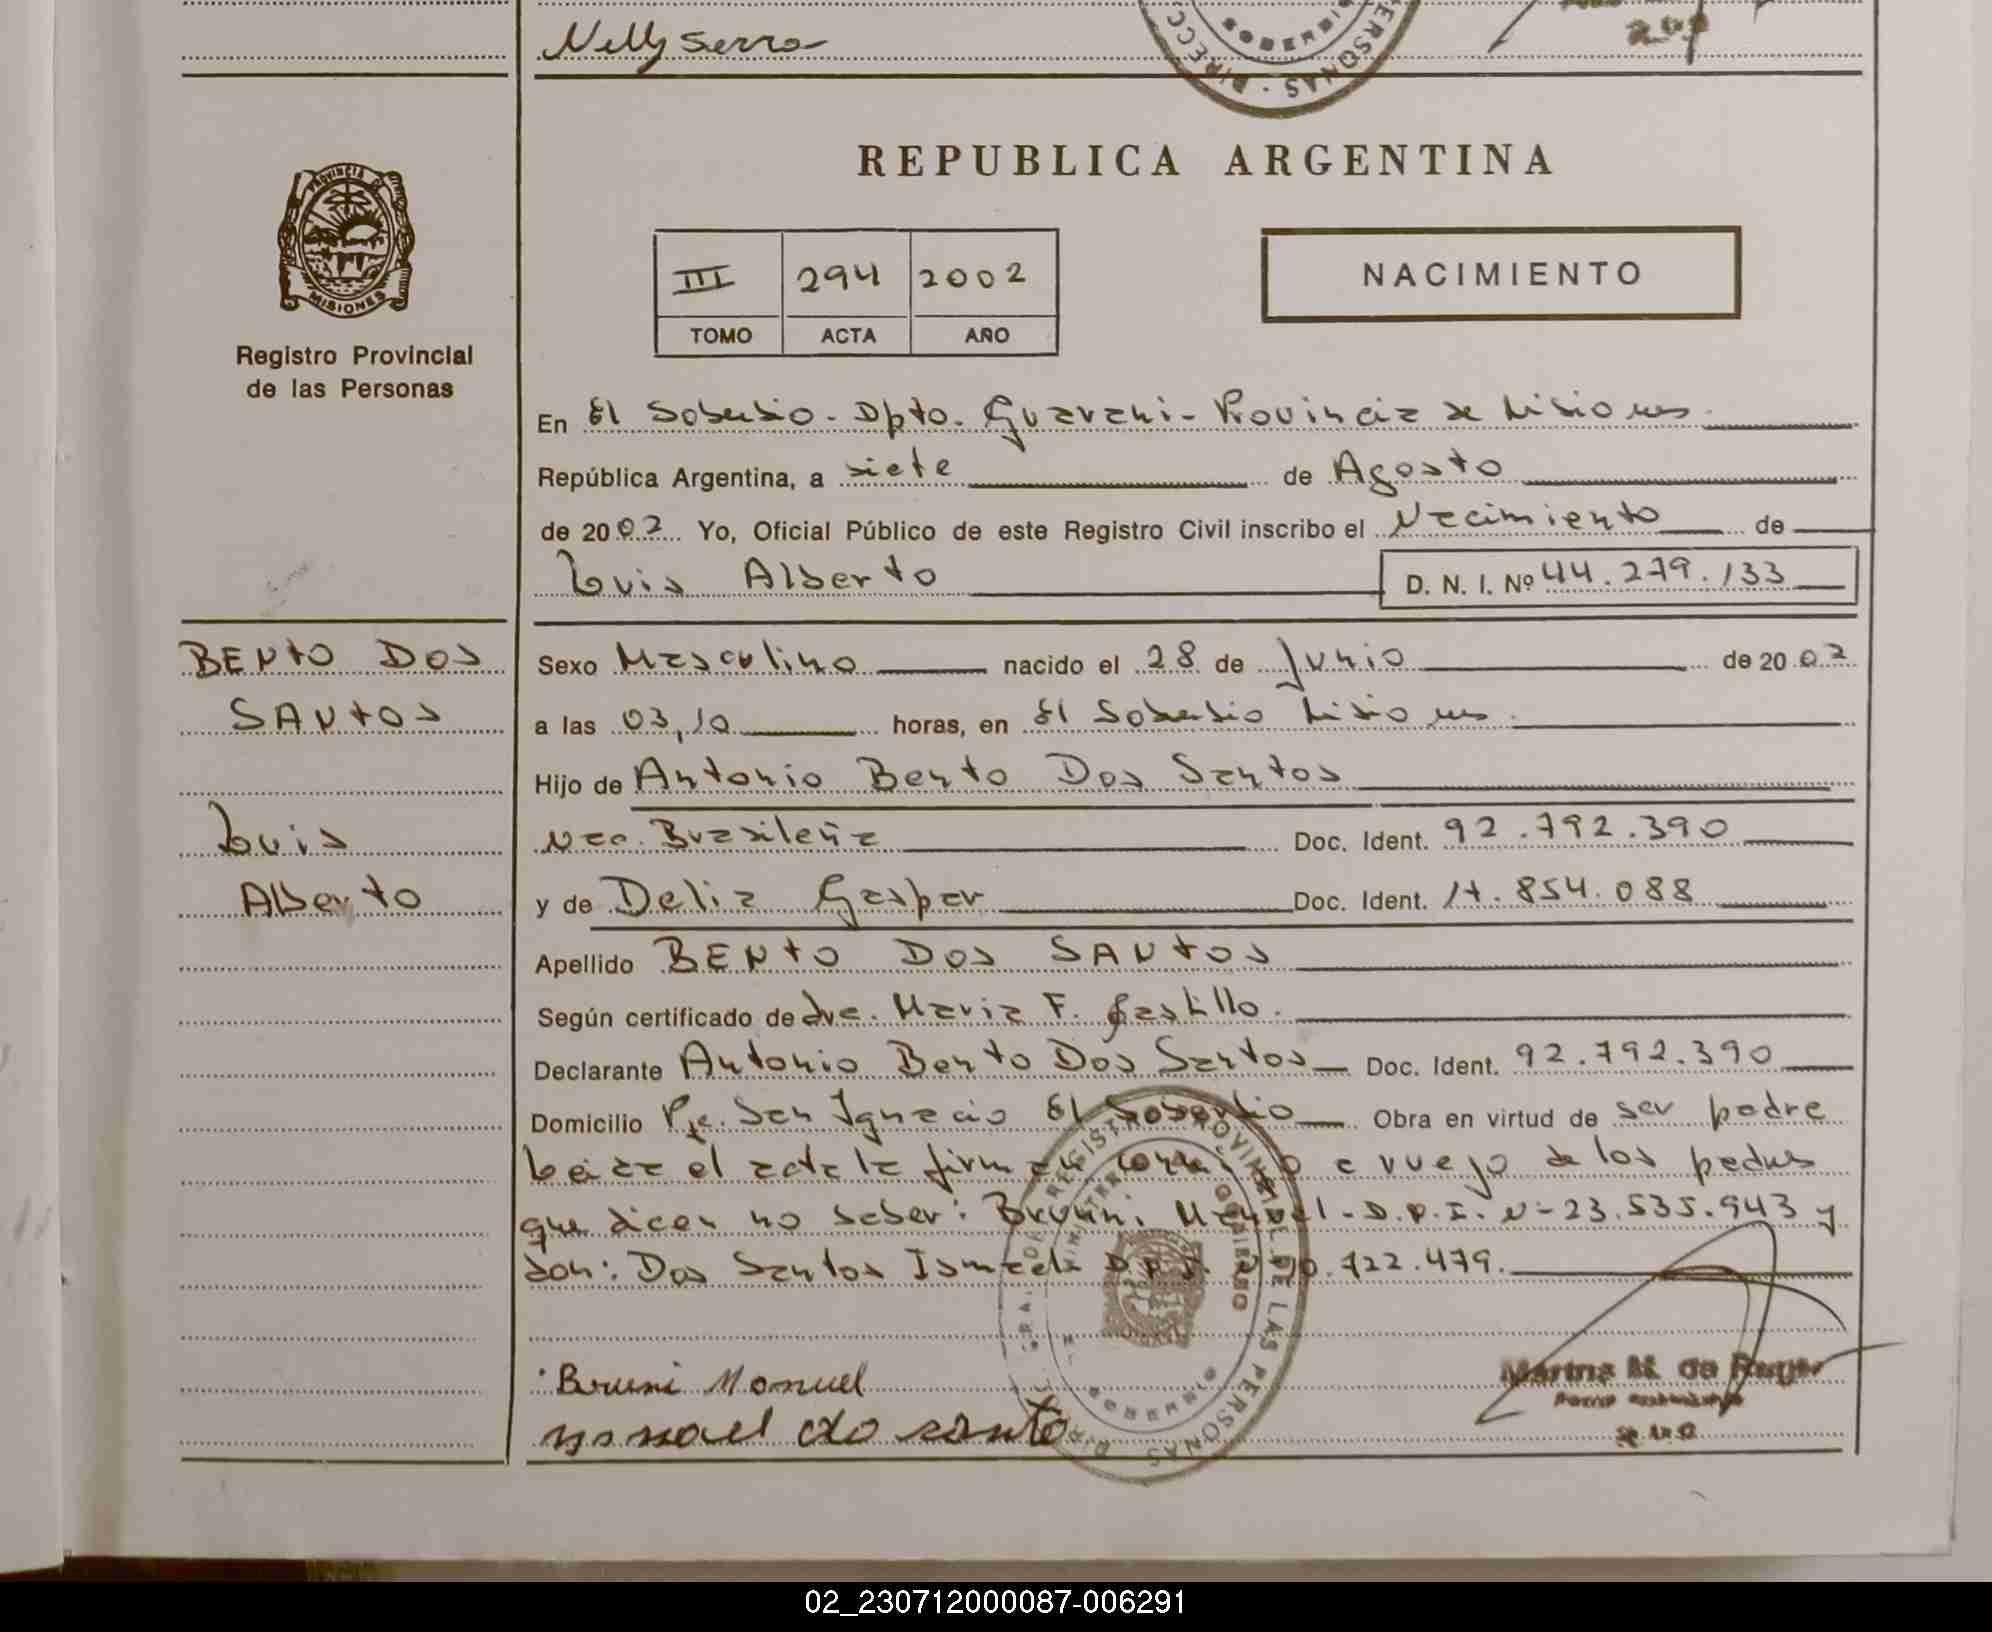 Nelly Serro
REPUBLICA ARGENTINA
PROVINCIA DE
MISIONES
Registro Provincial
de las Personas
III 294 2002
TOMO ACTA AÑO
NACIMIENTO
En El Soberbio - Dpto. Guarani - Provincia de Misiones.
República Argentina, a siete de Agosto
de 2002 Yo, Oficial Público de este Registro Civil inscribo el Nacimiento de
Luis Alberto D. N. I. Nº 44.279.133
BENTO DOS
SANTOS
Luis
Alberto
Sexo Masculino nacido el 28 de Junio de 2002
a las 03,10 horas, en El Soberbio Misiones.
Hijo de Antonio Bento Dos Santos
Nac. Brasileña Doc. Ident. 92.792.390
y de Delia Gaspar Doc. Ident. 17.854.088
Apellido BENTO DOS SANTOS
Según certificado de Dra. Maria F. Castillo.
Declarante Antonio Bento Dos Santos Doc. Ident. 92.792.390
Domicilio Pje. San Ignacio El Soberbio Obra en virtud de ser padre
Leida el acta la firman conmigo a ruego de los padres
que dicen no saber: Bruni Manuel - D.N.I. Nº 23.535.943 y
don: Dos Santos Ismael D.N.I.
Bruni Manuel
ysmael do santo
REGISTRO PROVINCIAL DE LAS PERSONAS
Marina M. de Reyer
02_230712000087-006291